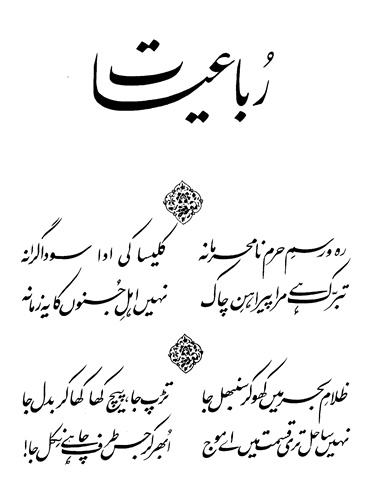 رُباعیات
رہ و رسمِ حرم نا محرمانہ کلیسا کی ادا سوداگرانہ
تبرّک ہے مرا پیراہنِ چاک نہیں اہلِ جُنوں کا یہ زمانہ
ظلامِ بحر میں کھو کر سنبھل جا تڑپ جا، پیچ کھا کھا کر بدل جا
نہیں ساحل تری قسمت میں اے موج اُبھر کر جس طرف چاہے نِکل جا!